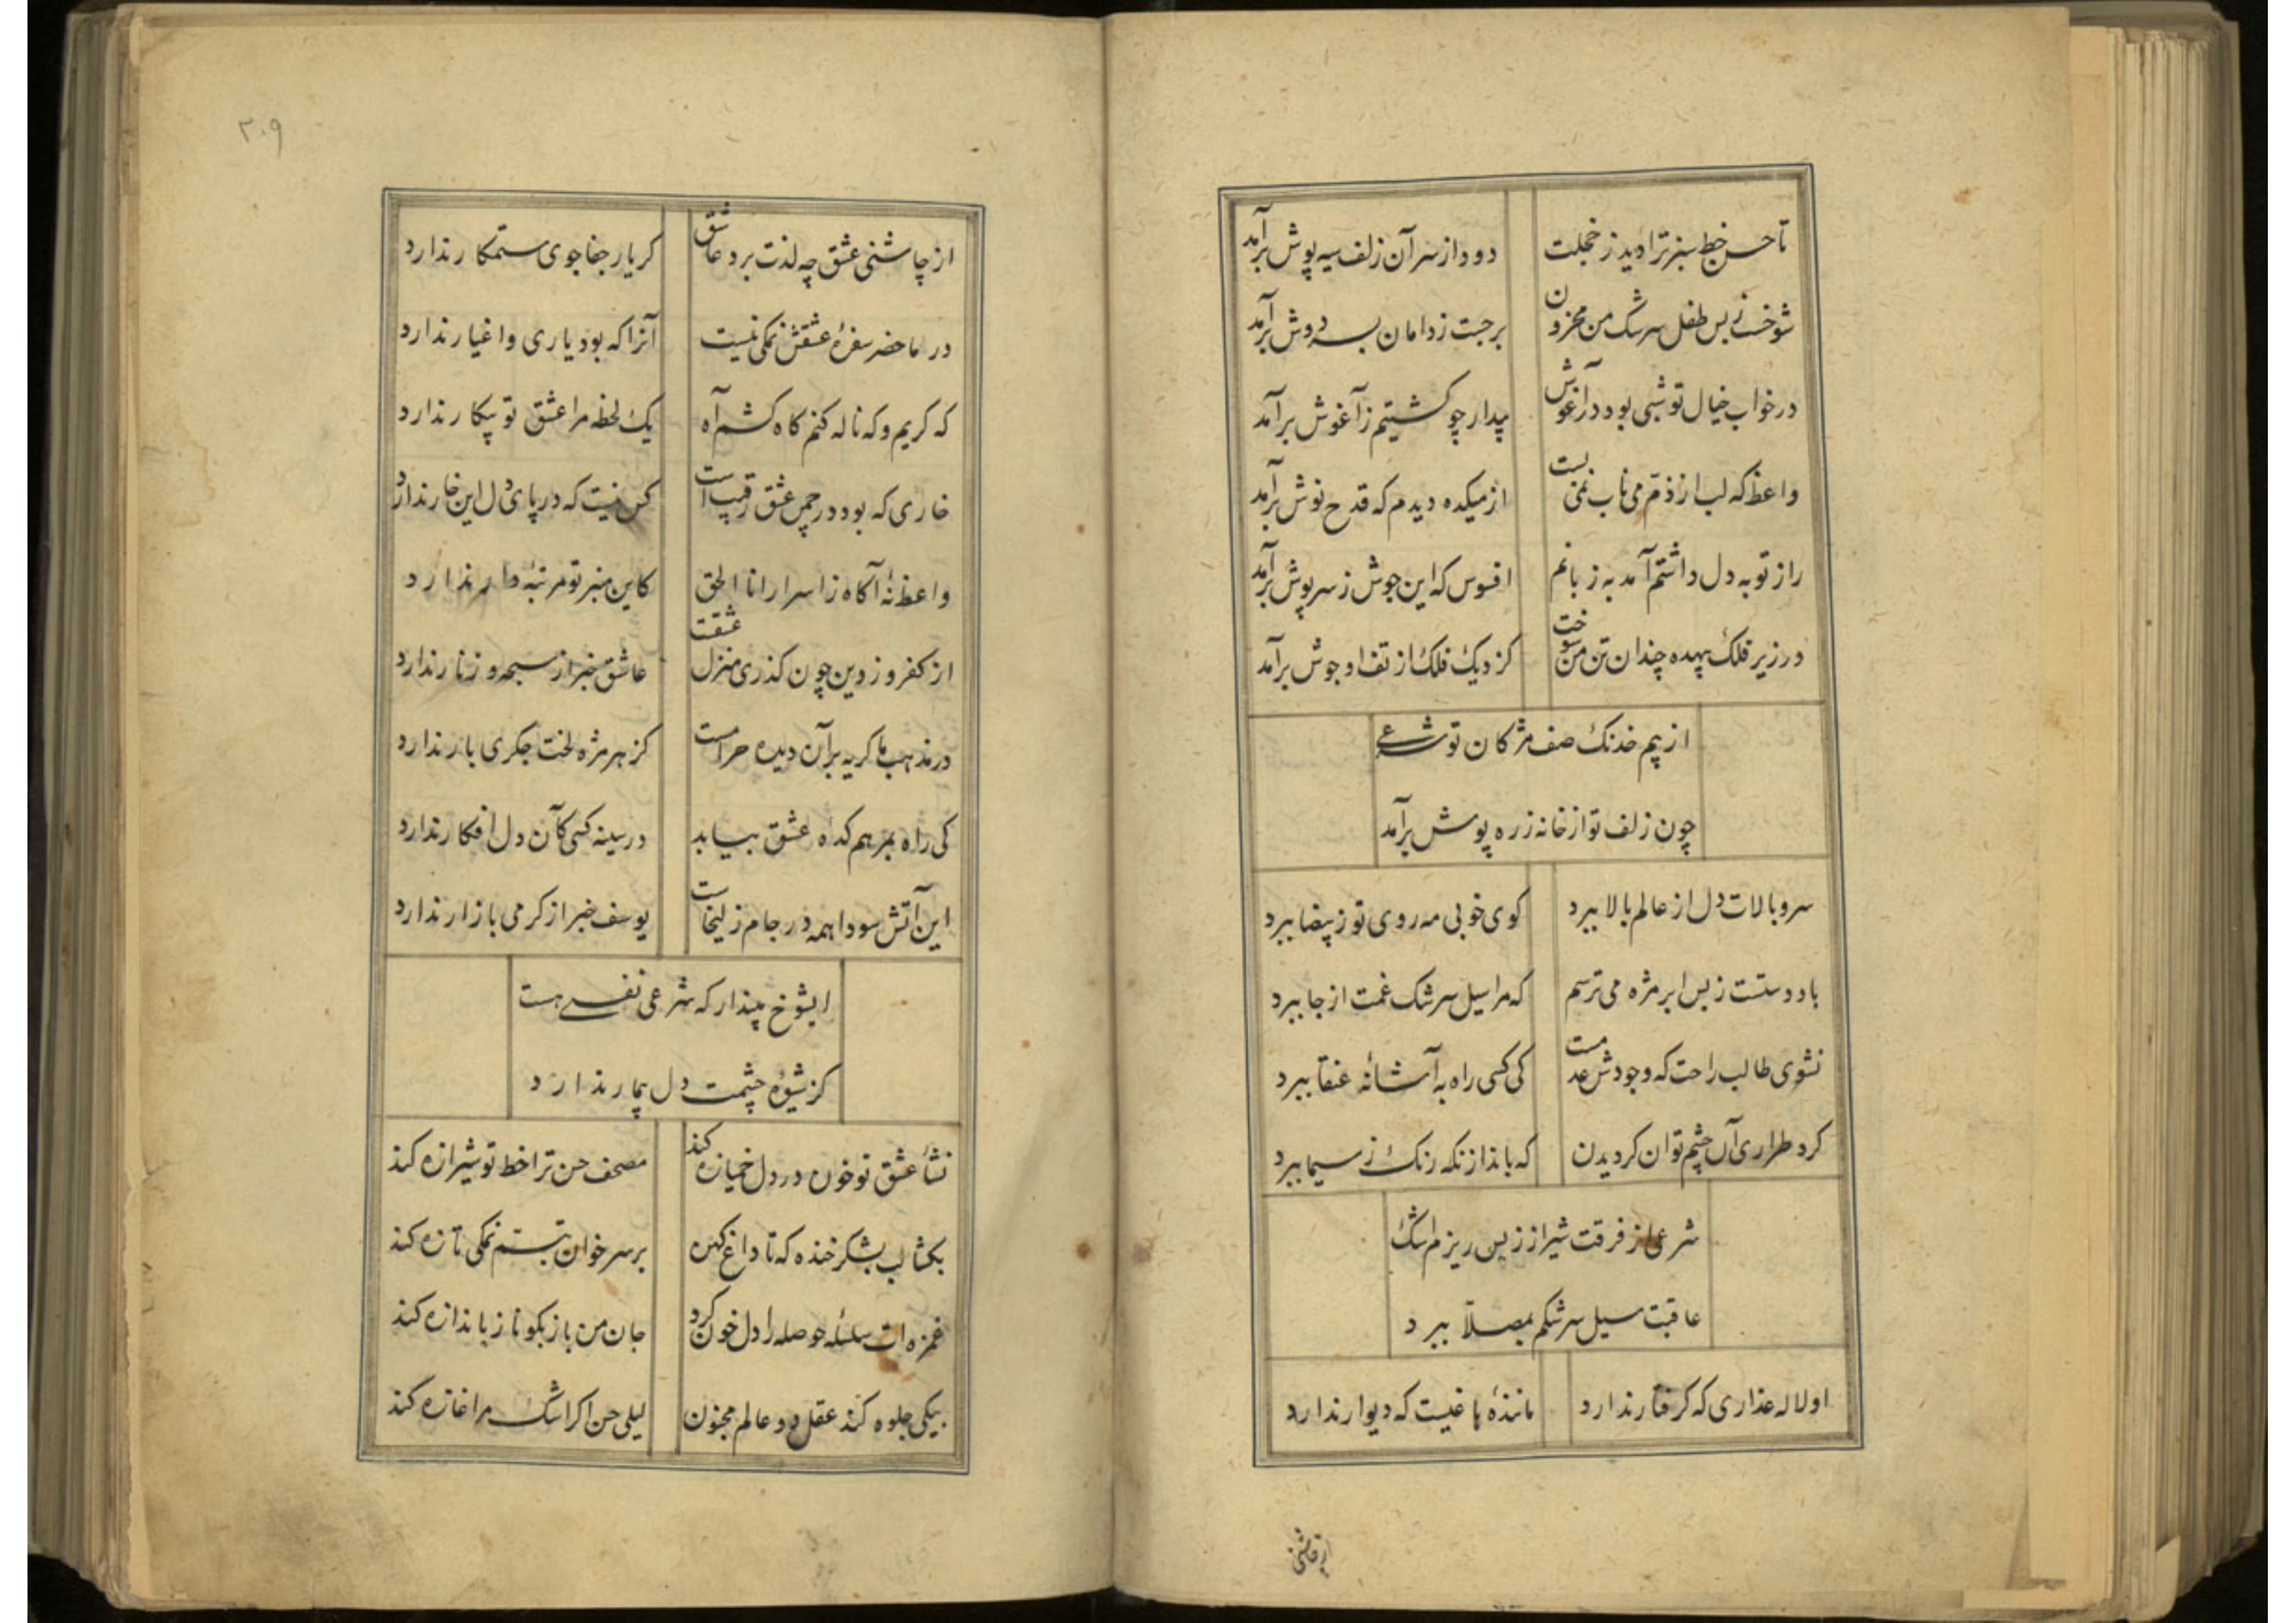 تا حسن خط سبز ترا دید ز خجلت دود از سر آن زلف سیه پوش برآمد
شوخست ز بس طفل سرشک من محزون برجست ز دامان بسر دوش برآمد
در خواب خیال تو شبی بود در آغوش بیدار چو کشتیم ز آغوش برآمد
واعظ که لب از ذم می ناب نمی بست از میکده دیدم که قدح نوش برآمد
راز تو به دل داشتم آمد به زبانم افسوس که این جوش ز سرپوش برآمد
در زیر فلک بیهده چندان تن من سوخت کز دیک فلک از تف او جوش برآمد
از بیم خدنک صف مژکان تو شرعی
چون زلف تو از خانه زره پوش برآمد
سرو بالات دل از عالم بالا ببرد کوی خوبی مه روی تو ز بیضا ببرد
باد دستست ز بس ابر مژه می ترسم که مرا سیل سرشک غمت از جا ببرد
نشوی طالب راحت که وجودش عدمست کی کسی راه به آشیانهٔ عنقا ببرد
کرد طراری آن چشم توان کردیدن که بانداز نکه رنک ز سیما ببرد
شرعی از فرقت شیراز ز بس ریزم اشک
عاقبت سیل سرشکم بمصلّا ببرد
او لاله عذاری که کرفتار ندارد مانندهٔ باغیست که دیوار ندارد
از چاشنی
۲۰۹
از چاشنی عشق چه لذت برد عاشق کر یار جفاجوی ستمکار ندارد
در ماحضر سفرهٔ عشقش نمکی نیست آنرا که بود یاری و اغیار ندارد
که کریم و که ناله کنم کاه کشم آه یک لحظه مرا عشق تو بیکار ندارد
خاری که بود در چمن عشق رقیب است کس نیست که در پای دل این خار ندارد
واعظ نهٔ آکاه ز اسرار انا الحق کاین منبر تو مرتبهٔ دار ندارد
از کفر و ز دین چون کذری منزل عشقت عاشق خبر از سبحه و زنار ندارد
در مذهب ما کریه بر آن دیده حرامست کز هر مژه لخت جکری بار ندارد
کی راه بمرهم کده عشق بیابد در سینه کسی کآن دل افکار ندارد
این آتش سودا همه در جام زلیخاست یوسف خبر از کرمی بازار ندارد
ایشوخ مپندار که شرعی نفسی هست
کز شیوهٔ چشمت دل بیمار ندارد
نشأ عشق تو خون در دل خمیازه کند مصحف حسن ترا خط تو شیرازه کند
بکشا لب بشکر خنده که تا داغ کهن بر سر خوان تبسّم نمکی تازه کند
غمزه ات سلسلهٔ حوصله را دل خون کرد جان من باز بکو ناز باندازه کند
بیکی جلوه کند عقل دو عالم مجنون لیلی حسن اکر اشک مرا غازه کند